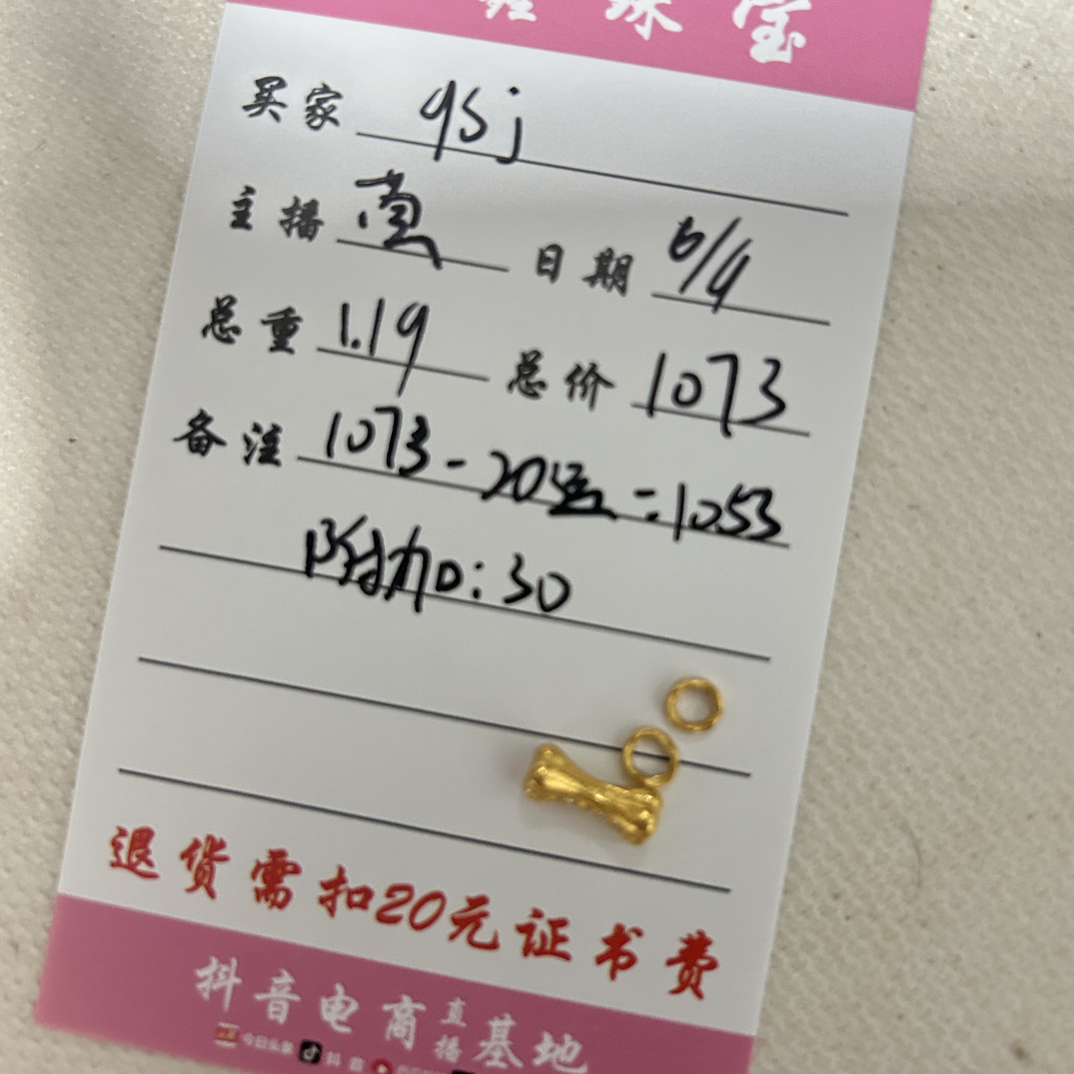 珠宝
买家 qsj
主播 萱 日期 6/9
总重 1.19 总价 1073
备注 1073-20 = 1053
附加:30
退货需扣20元证书费
抖音电商直播基地
今日头条 抖音